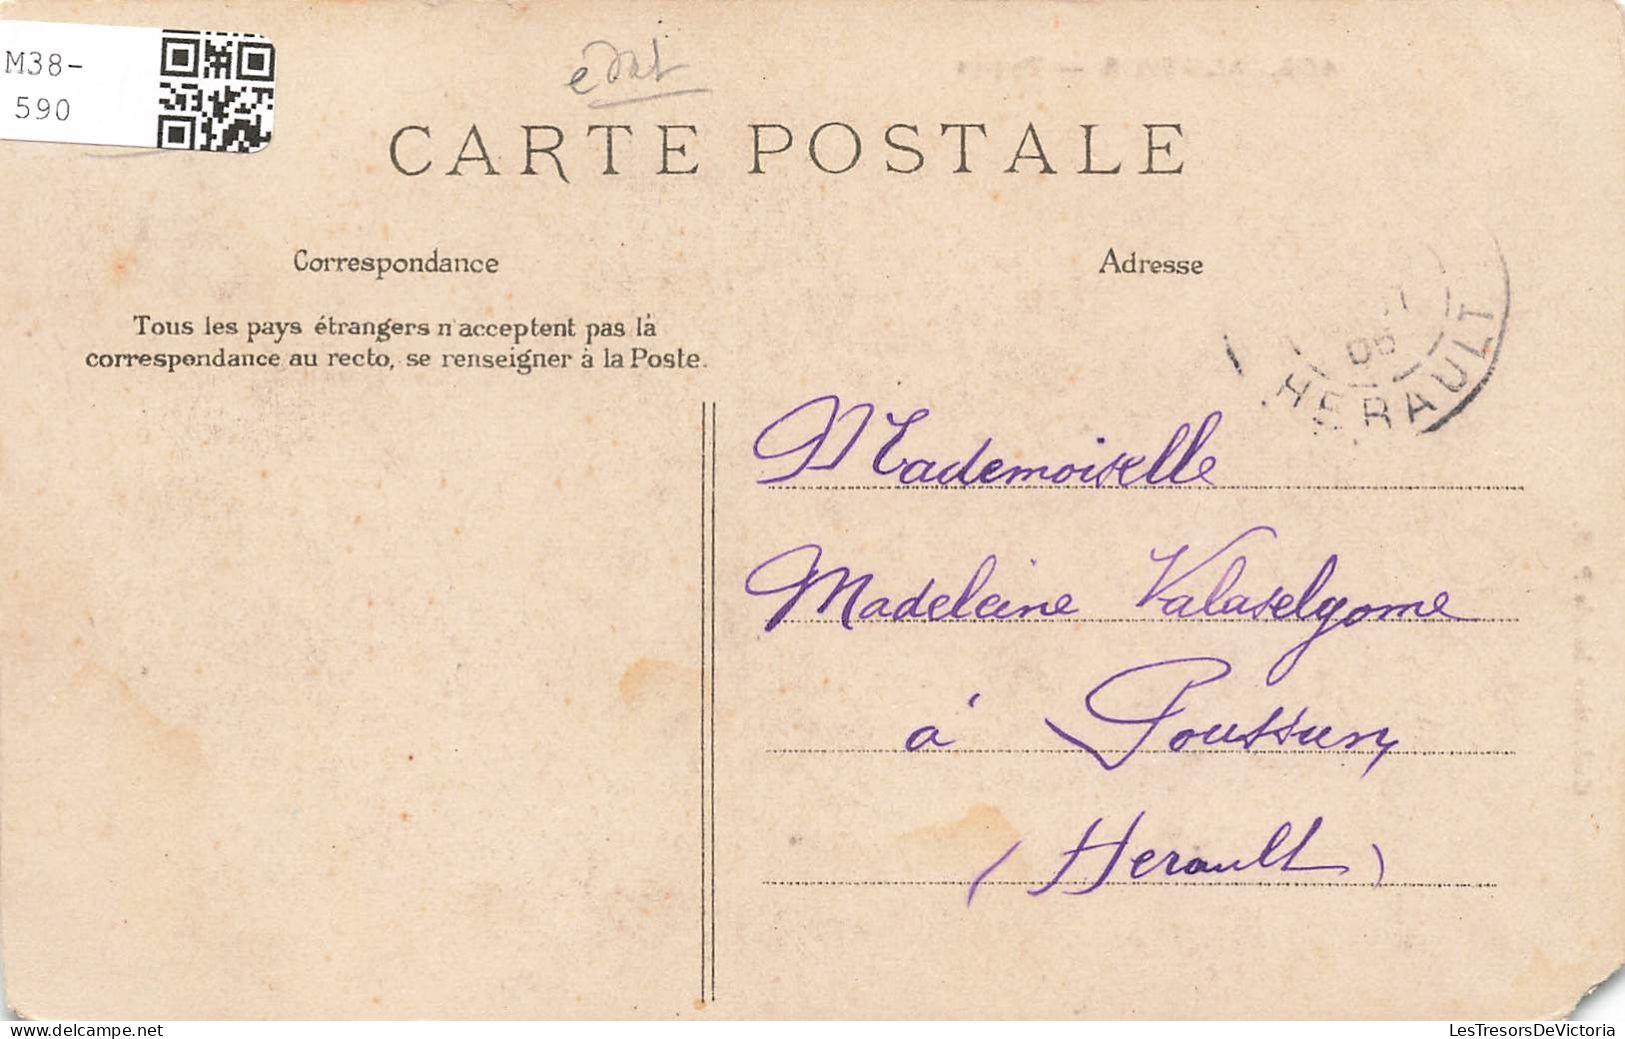 M38-
590
CARTE POSTALE
Correspondance
Adresse
Tous les pays étrangers n'acceptent pas la
correspondance au recto, se renseigner à la Poste.
06
HERAULT
Mademoiselle
Madeleine Valaselgome
à Poussan
(Herault)
www.delcampe.net
LesTresorsDeVictoria